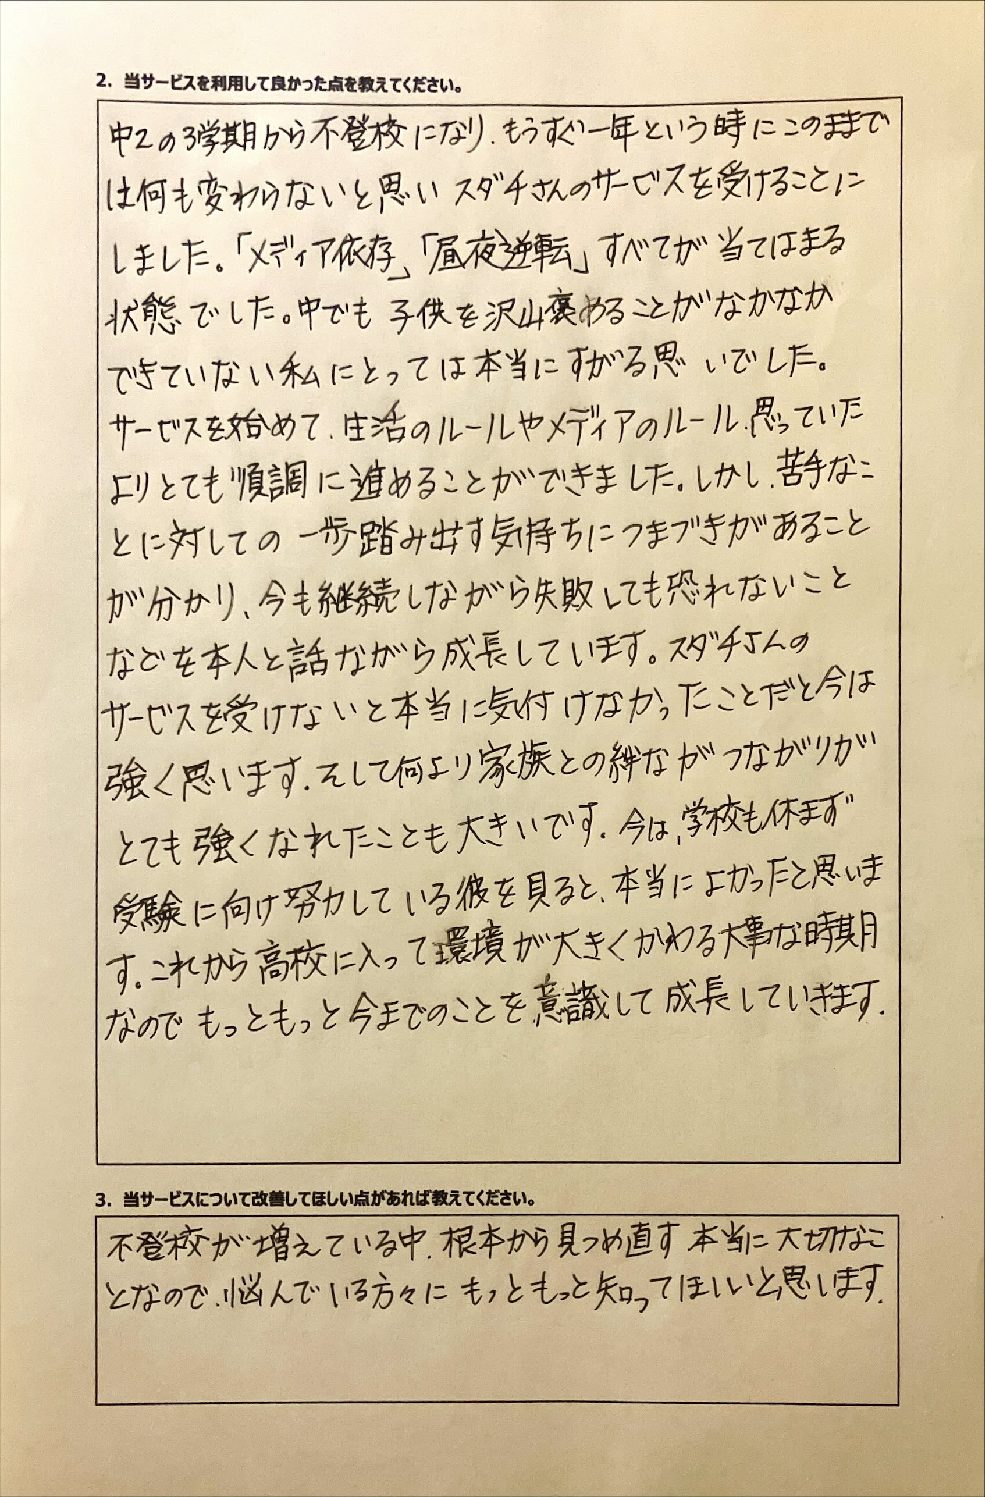 2. 当サービスを利用して良かった点を教えてください。
中2の3学期から不登校になり、もうすぐ一年という時にこのままで
は何も変わらないと思い スダチさんのサービスを受けることに
しました。「メディア依存」「昼夜逆転」すべてが当てはまる
状態でした。中でも 子供を沢山褒めることがなかなか
できていない私にとっては本当にすがる思いでした。
サービスを始めて、生活のルールやメディアのルール、思っていた
よりとても順調に進めることができました。しかし、苦手なこ
とに対しての一歩踏み出す気持ちにつまづきがあること
が分かり、今も継続しながら失敗しても恐れないこと
などを本人と話ながら成長しています。スダチさんの
サービスを受けないと本当に気付けなかったことだと今は
強く思います。そして何より家族との絆ながつながりが
とても強くなれたことも大きいです。今は、学校も休まず
受験に向け努力している彼を見ると、本当によかったと思いま
す。これから高校に入って環境が大きくかわる大事な時期
なので もっともっと今までのことを意識して成長していきます。
3. 当サービスについて改善してほしい点があれば教えてください。
不登校が増えている中、根本から見つめ直す 本当に大切なこ
となので、悩んでいる方々に もっともっと知ってほしいと思います。